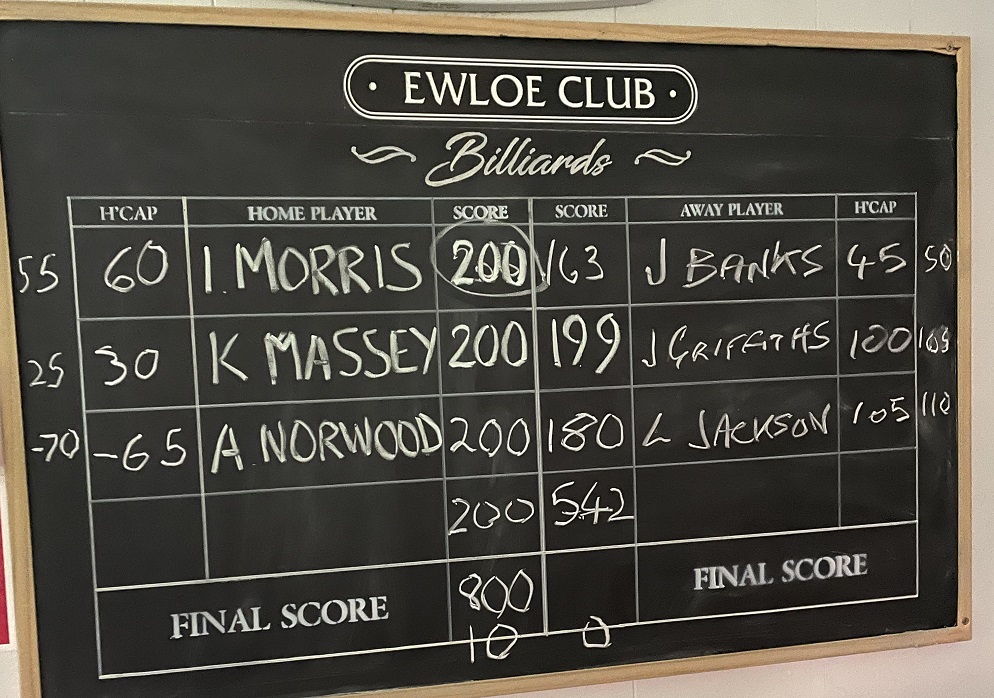 · EWLOE CLUB ·
Billiards
H'CAP HOME PLAYER SCORE SCORE AWAY PLAYER H'CAP
55 60 I. MORRIS 200 163 J BANKS 45 50
25 30 K MASSEY 200 199 J GRIFFITHS 100 105
-70 -65 A NORWOOD 200 180 L JACKSON 105 110
200 542
FINAL SCORE 800 FINAL SCORE
10 0